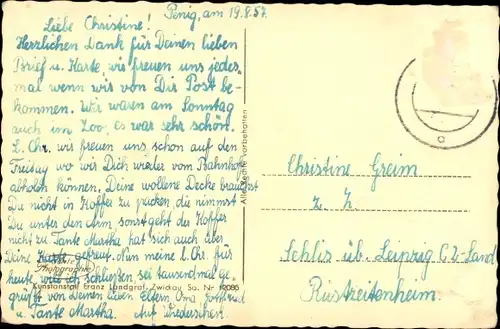 Penig, am 19.8.57.
Liebe Christine!
Herzlichen Dank für Deinen lieben
Brief u. Karte wir freuen uns jedes
mal wenn wir von Dir Post be-
kommen. Wir waren am Sonntag
auch im Zoo, es war sehr schön.
L. Chr. wir freuen uns schon auf den
Freitag wo wir Dich wieder vom Bahnhof
abholen können, Deine wollene Decke brauchst
Du nicht in Koffer zu packen, die nimmst
Du unter den Arm sonst geht der Koffer
nicht zu. Tante Martha hat sich auch über
Deine Karte gefreut. Nun meine l. Chr. für
heute will ich schließen, sei tausendmal ge-
grüßt von deinen lieben Eltern Oma,
u. Tante Martha. Auf Wiedersehen.
Photographie
Kunstanstalt Franz Landgraf, Zwickau Sa. Nr. 12086
Alle Rechte vorbehalten
Christine Greim
z. Z.
Schlis üb. Leipzig C2-Land